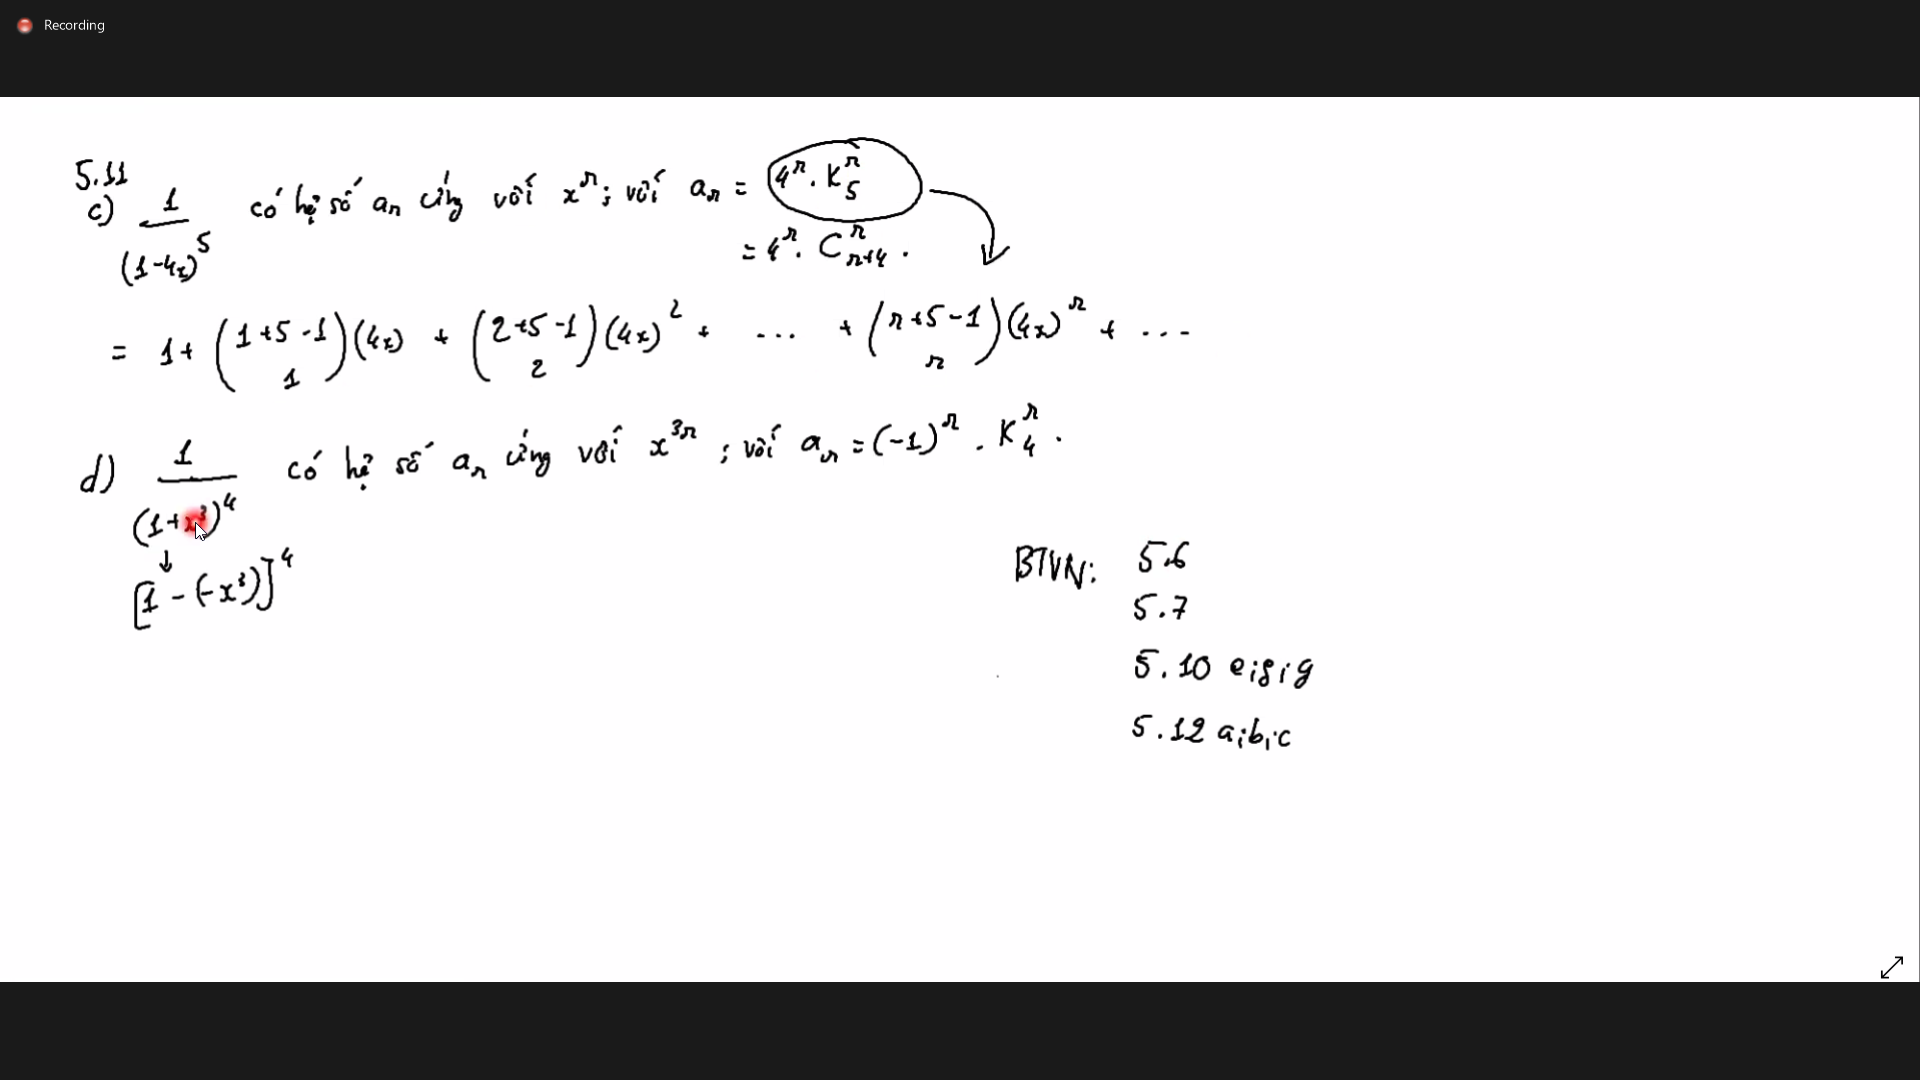 Recording
5.11
c) 1/(1-4x)^5 có hệ số a_r ứng với x^r; với a_r = 4^r . K_5^r
= 4^r . C_{r+4}^r .
= 1 + (1+5-1 / 1)(4x) + (2+5-1 / 2)(4x)^2 + ... + (r+5-1 / r)(4x)^r + ...
d) 1/(1+x^3)^4 có hệ số a_r ứng với x^{3r} ; với a_r = (-1)^r . K_4^r .
↓
[1 - (-x^3)]^4
BTVN: 5.6
5.7
5.10 e;f;g
5.12 a;b;c